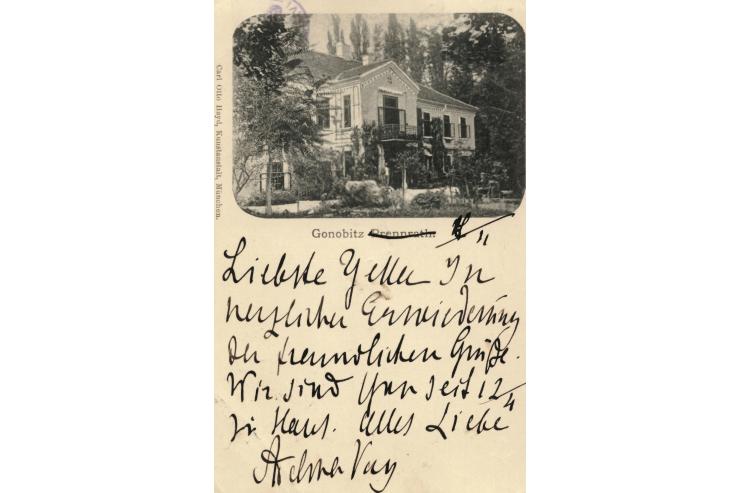 Carl Otto Hayd, Kunstanstalt, München.
Gonobitz Prennrath.
Liebste In
herzlicher Erwiederung
der freundlichen Grüße.
Wir sind seit 12/4
zu Haus. Alles Liebe